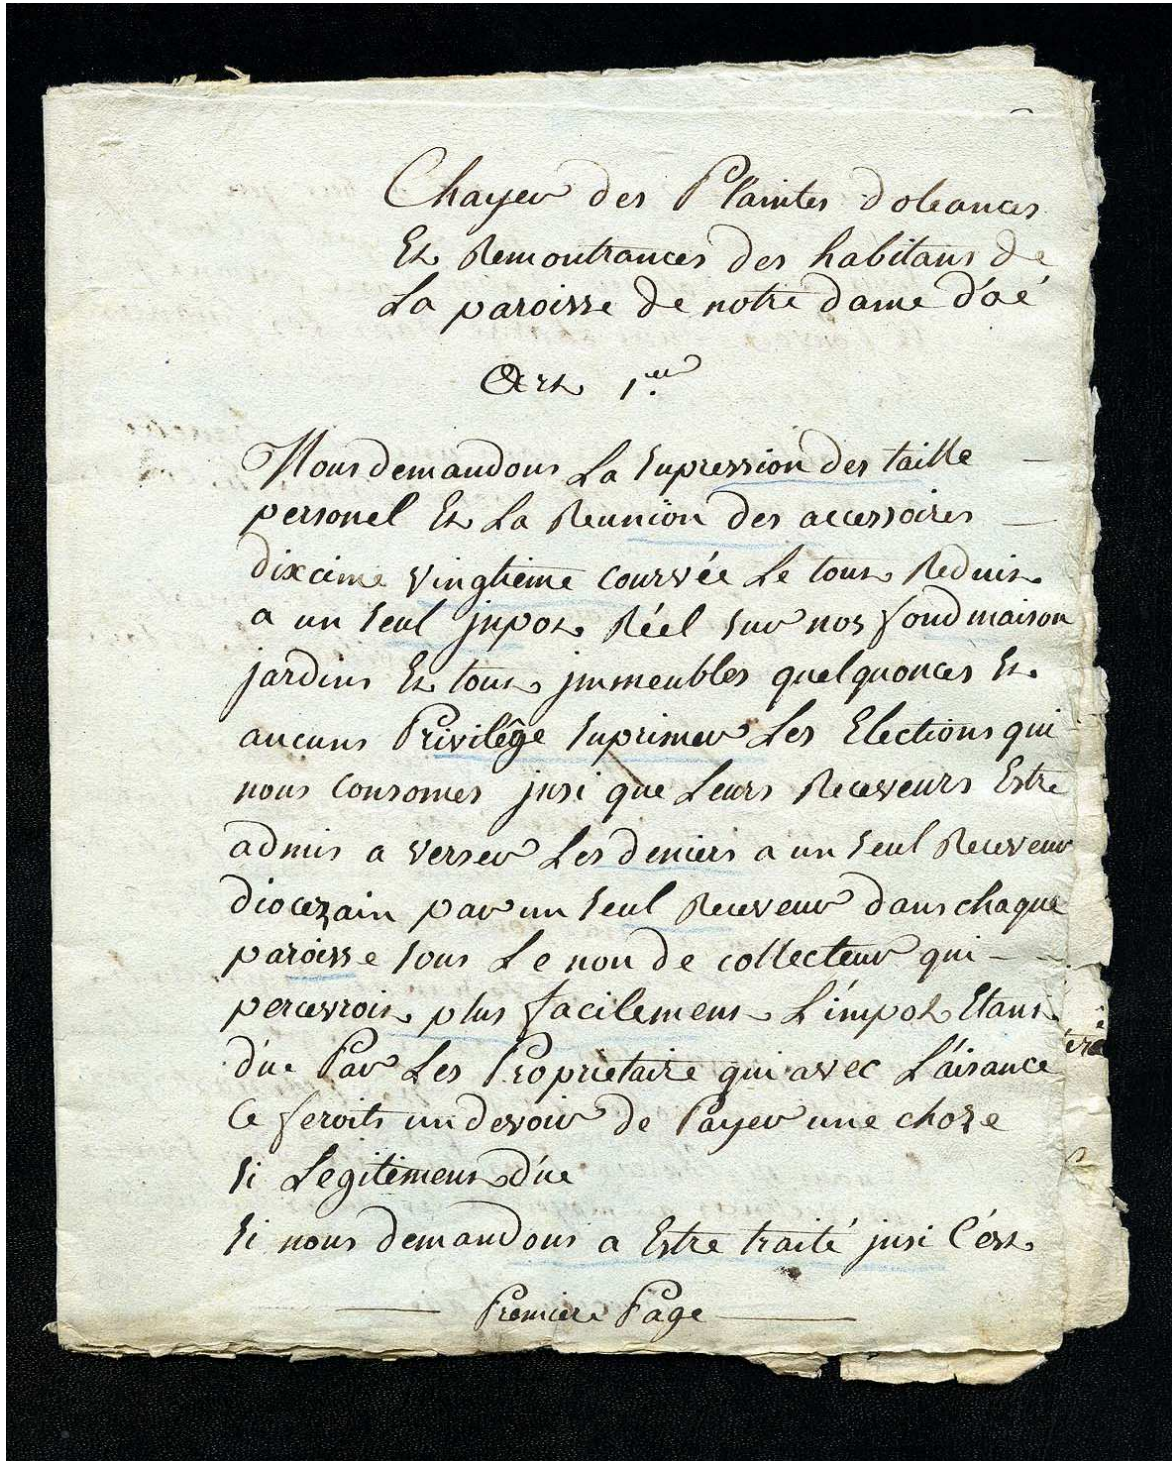 Chayer des Plaintes doleances
Et Remontrances des habitans de
La paroisse de notre dame d'oé
Art 1.er
Nous demandons La Supression des taille
personel Et La Reunion des accessoires
dixcime vingtieme courvée Le tout Reduit
a un Seul jnpot Réel sur nos fond maison
jardins Et tout jmmeubles quelquonces Et
aucuns Privilêge Suprimer Les Elections qui
nous Consomes jnsi que Leurs Receveurs Estre
admis a verser Les deniers a un Seul Receveur
diocezain par un Seul Receveur dans chaque
paroisse sous Le non de collecteur qui
percevroit plus facilement L'impot Etant
d'ue Par Les Proprietaire qui avec L'aisance
Ce feroits un devoir de Payer une choze
Si Legitement d'ue
Si nous demandons a Estre traité jnsi C'est
Premiere Page